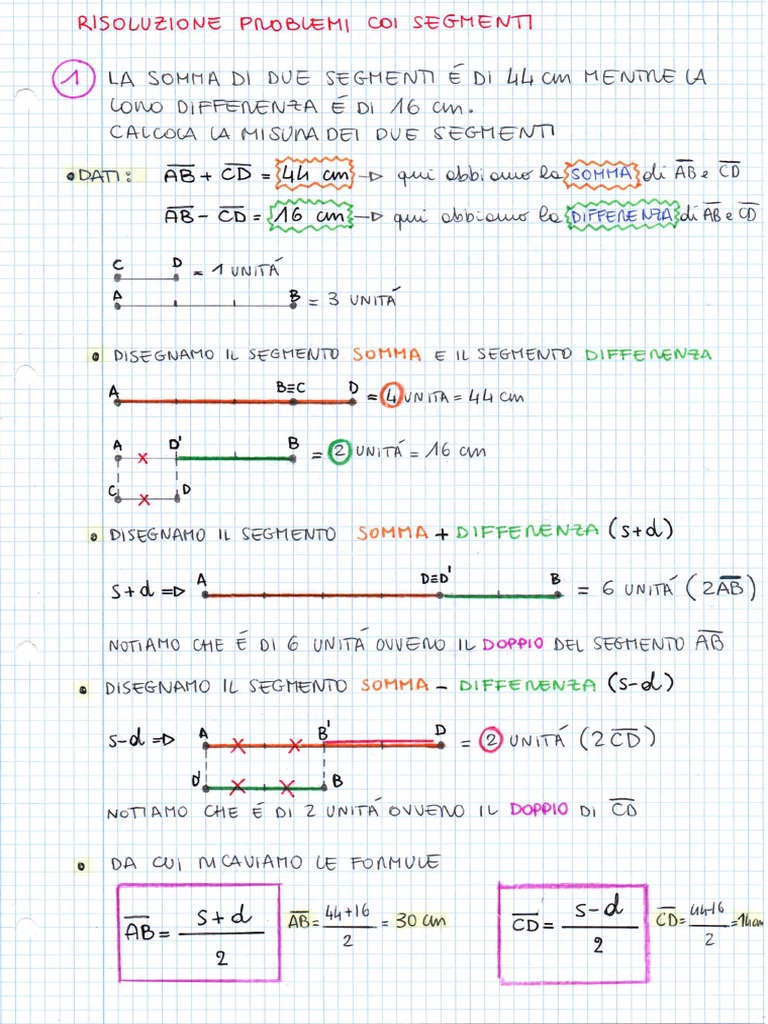 RISOLUZIONE PROBLEMI COI SEGMENTI
1 LA SOMMA DI DUE SEGMENTI É DI 44 cm MENTRE LA
LORO DIFFERENZA É DI 16 cm.
CALCOLA LA MISURA DEI DUE SEGMENTI
• DATI: A̅B̅ + C̅D̅ = 44 cm → qui abbiamo la SOMMA di A̅B̅ e C̅D̅
A̅B̅ - C̅D̅ = 16 cm → qui abbiamo la DIFFERENZA di A̅B̅ e C̅D̅
C D = 1 UNITÁ
A B = 3 UNITÁ
• DISEGNAMO IL SEGMENTO SOMMA E IL SEGMENTO DIFFERENZA
A B≡C D = 4 UNITA = 44 cm
A D' B = 2 UNITÁ = 16 cm
C D
• DISEGNAMO IL SEGMENTO SOMMA + DIFFERENZA (s+d)
s+d ⇒ A D≡D' B = 6 UNITÁ (2A̅B̅)
NOTIAMO CHE É DI 6 UNITÁ OVVERO IL DOPPIO DEL SEGMENTO A̅B̅
• DISEGNAMO IL SEGMENTO SOMMA - DIFFERENZA (s-d)
s-d ⇒ A B' D = 2 UNITÁ (2C̅D̅)
d' B
NOTIAMO CHE É DI 2 UNITÁ OVVERO IL DOPPIO DI C̅D̅
• DA CUI RICAVIAMO LE FORMULE
A̅B̅ = s+d / 2 A̅B̅ = 44+16 / 2 = 30 cm C̅D̅ = s-d / 2 C̅D̅ = 44-16 / 2 = 14 cm